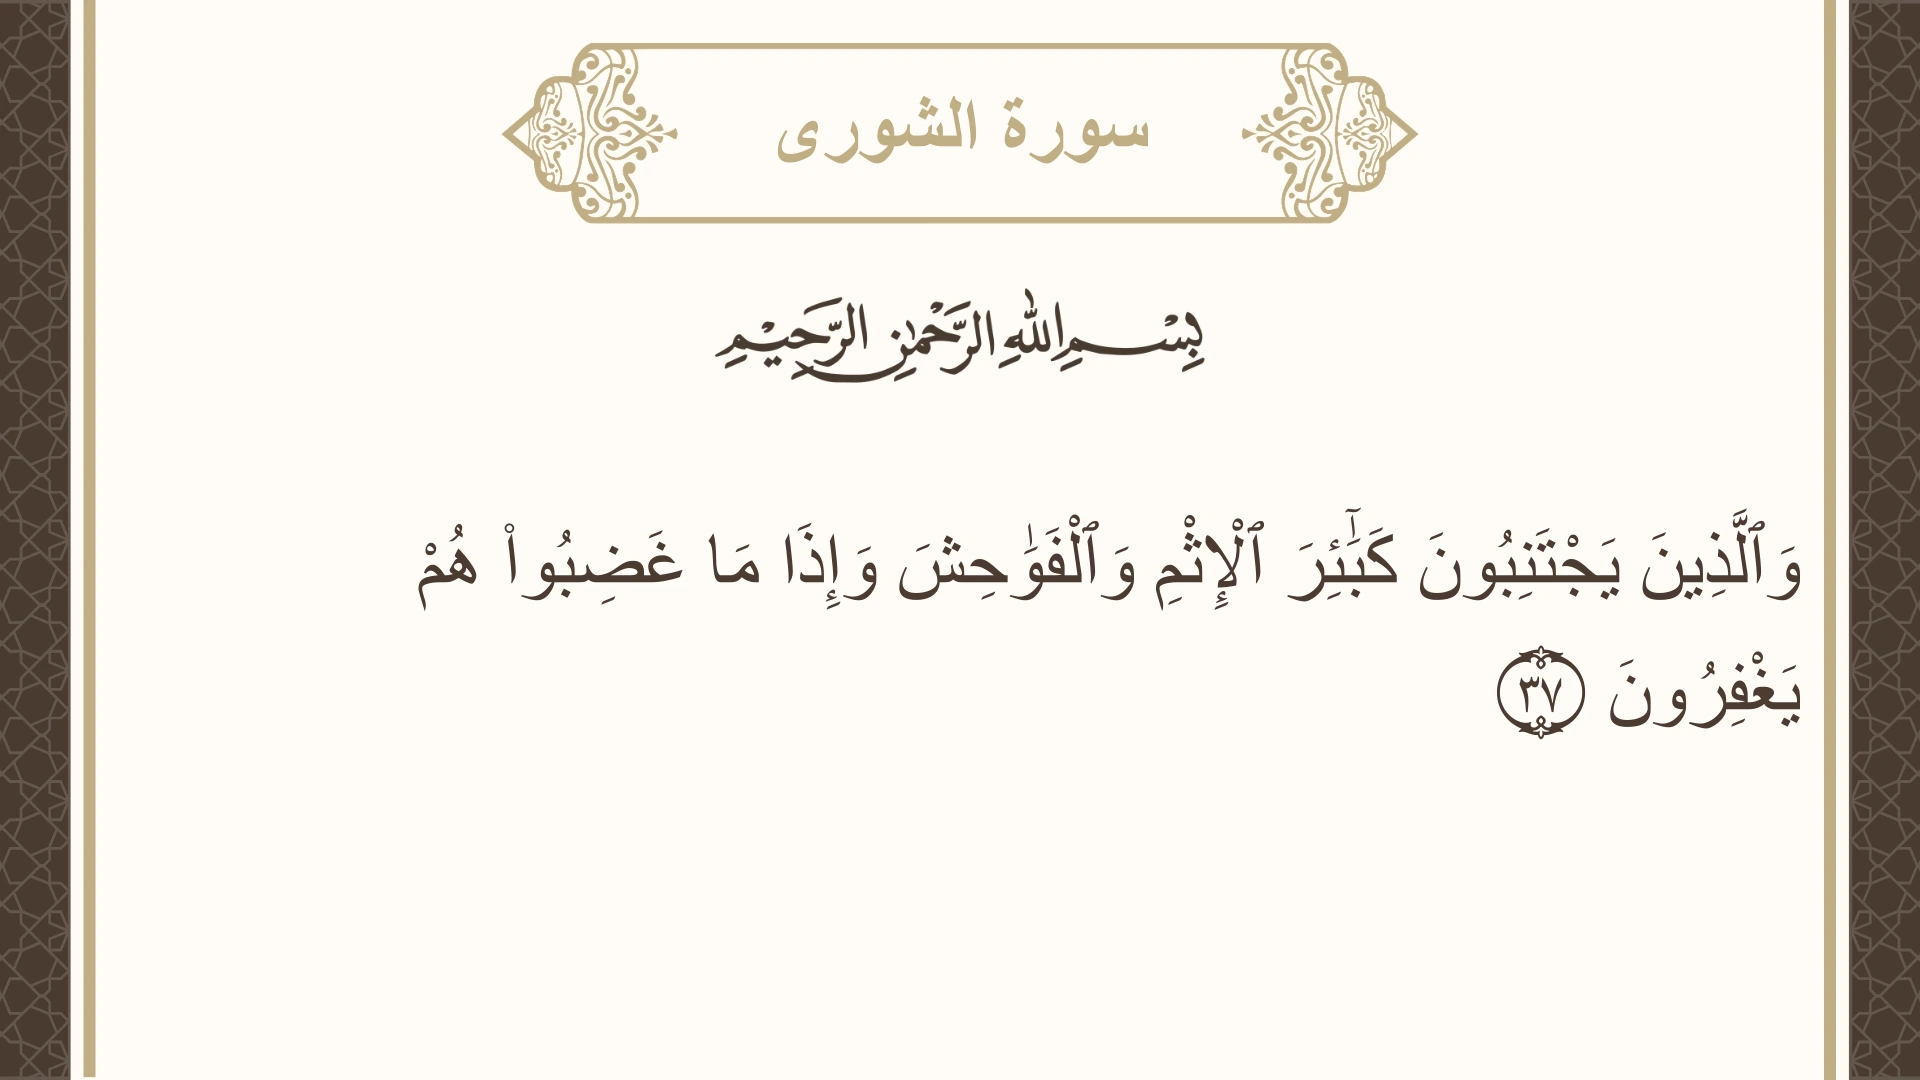 سورة الشورى
بِسْمِ اللهِ الرَّحْمٰنِ الرَّحِيْمِ
وَٱلَّذِينَ يَجْتَنِبُونَ كَبَٰٓئِرَ ٱلْإِثْمِ وَٱلْفَوَٰحِشَ وَإِذَا مَا غَضِبُوا۟ هُمْ
يَغْفِرُونَ ٣٧